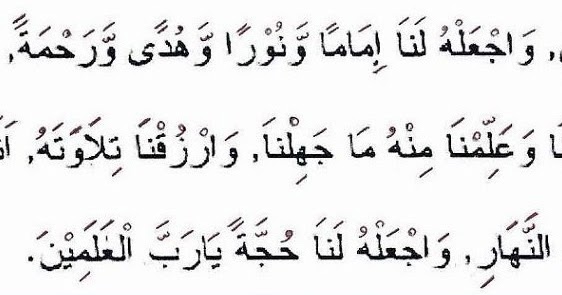 , وَاجْعَلْهُ لَنَا اِمَامًا وَّنُوْرًا وَّهُدًى وَّرَحْمَةً,
وَعَلِّمْنَا مِنْهُ مَا جَهِلْنَا, وَارْزُقْنَا تِلَاوَتَهُ,
النَّهَارِ, وَاجْعَلْهُ لَنَا حُجَّةً يَارَبَّ الْعٰلَمِيْنَ.